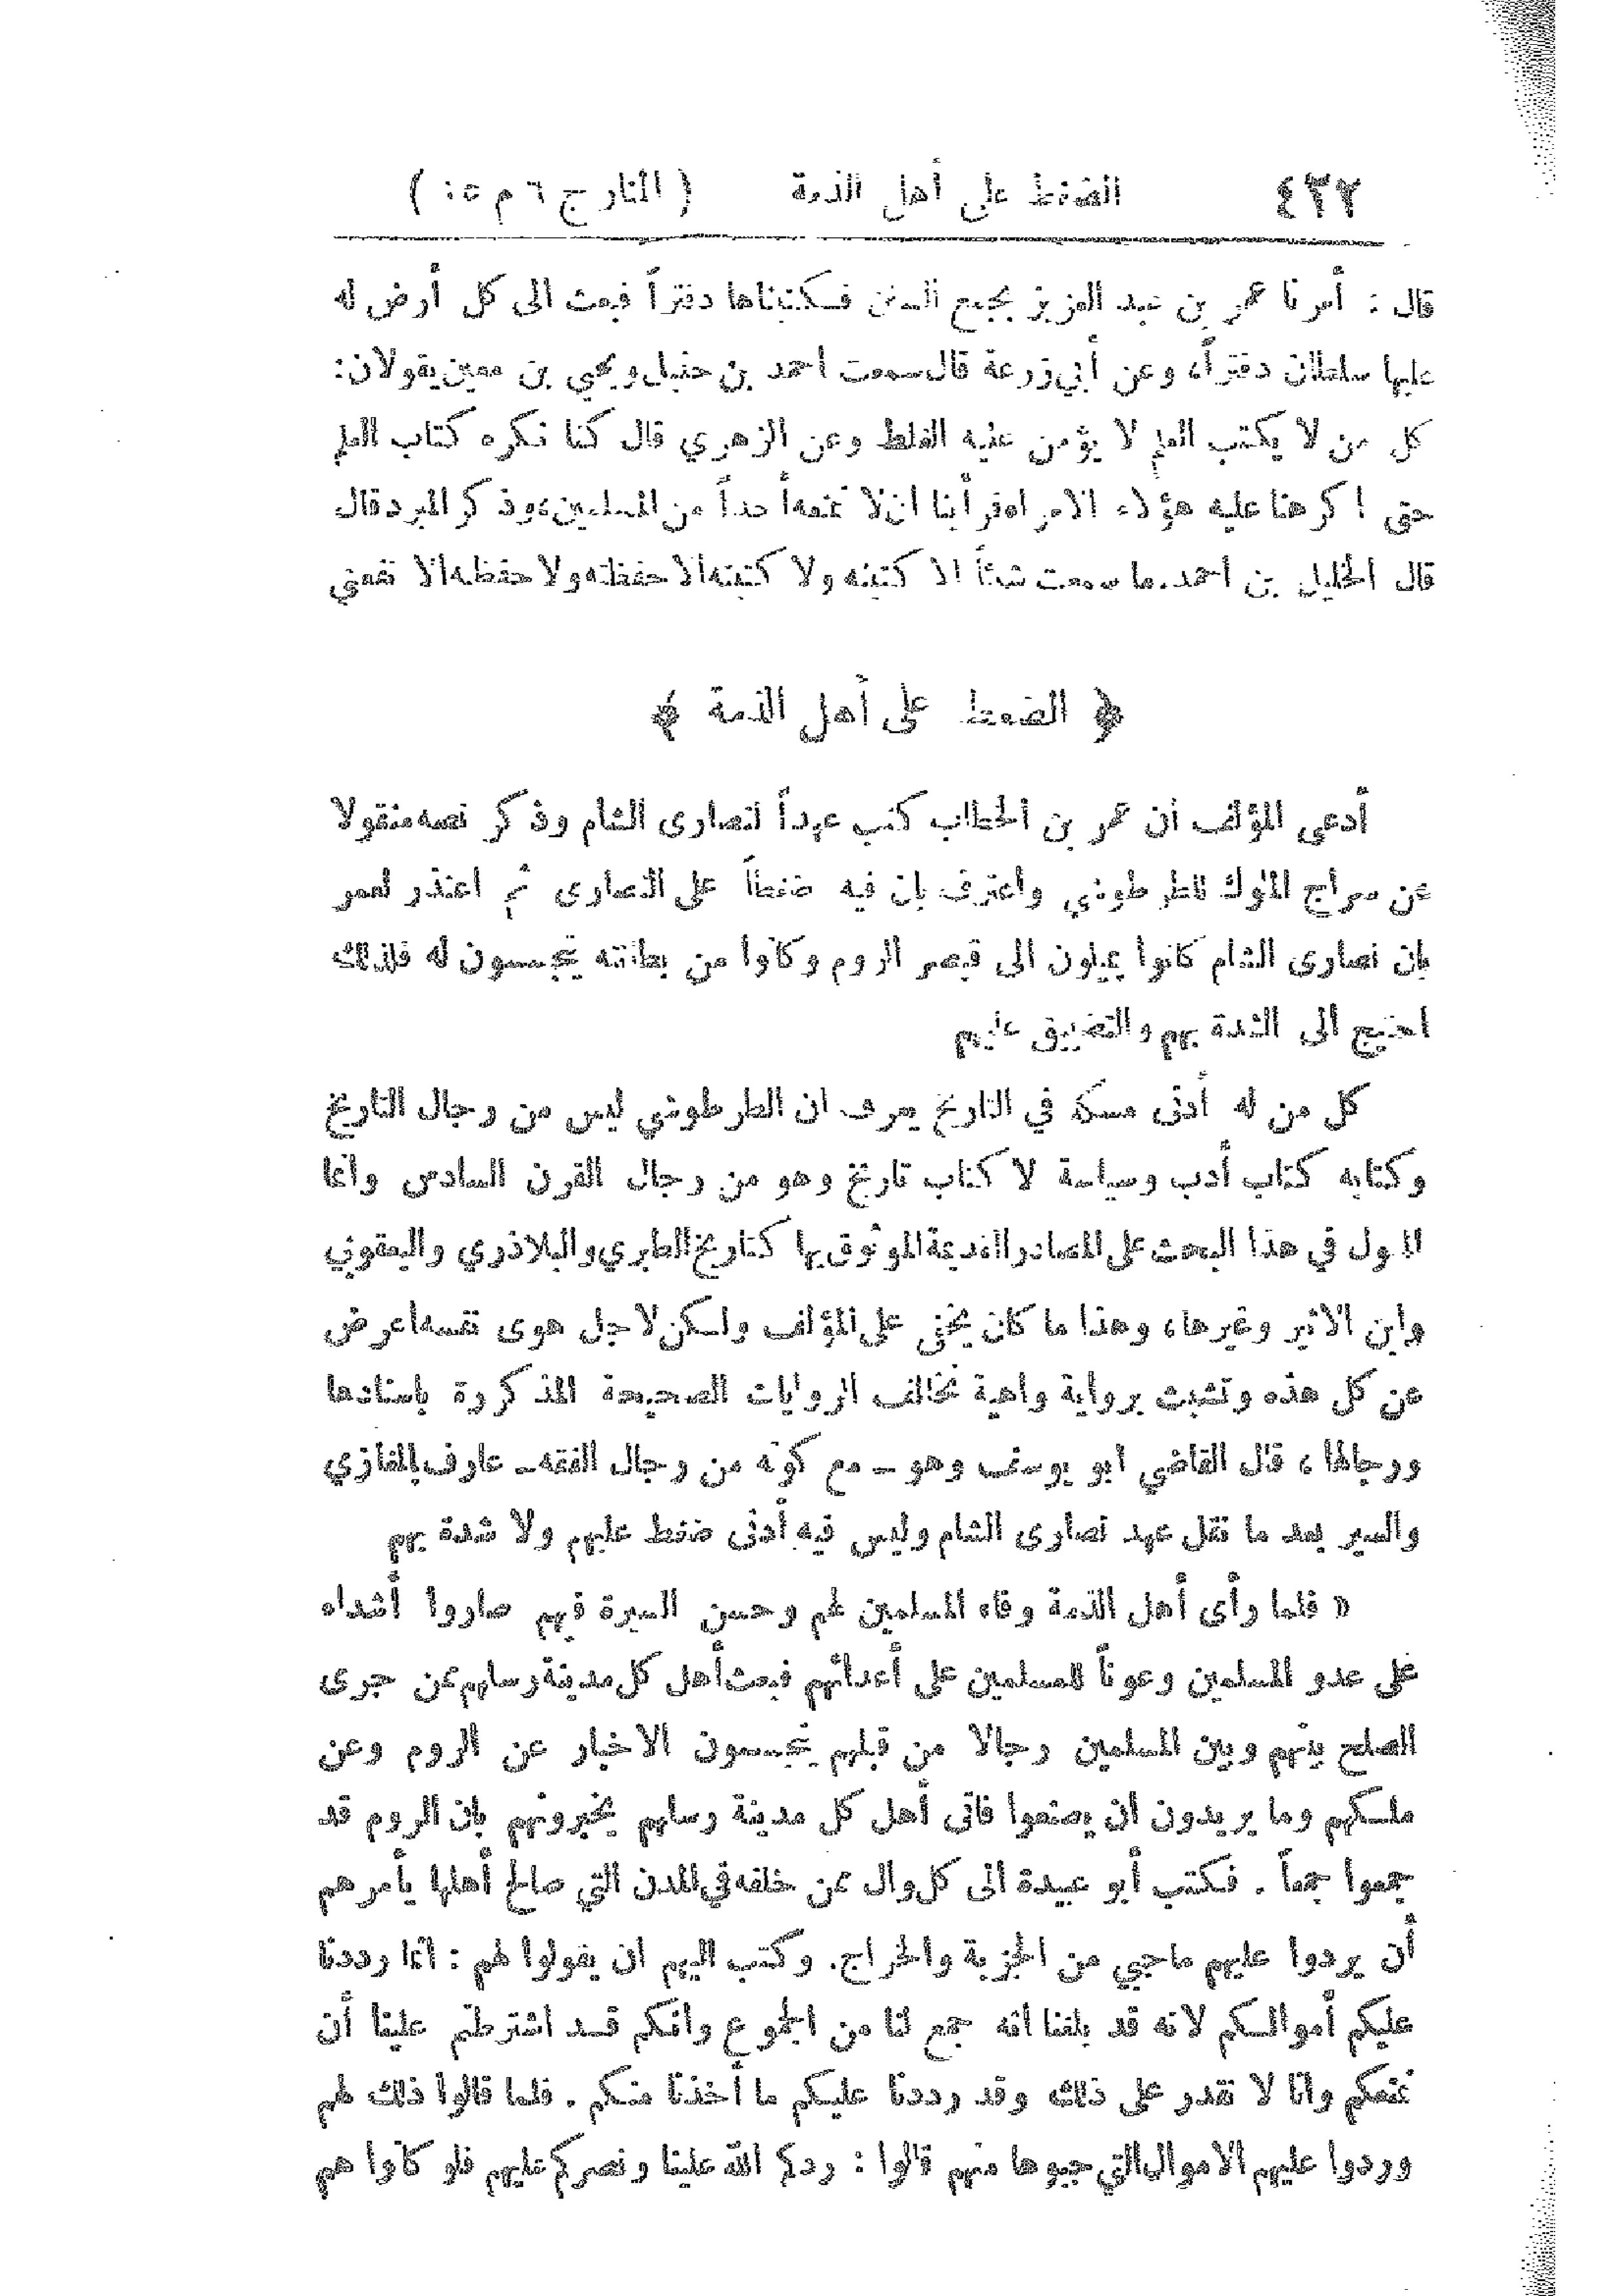 ٤٣٢ الضغط على أهل الذمة (المنار ج ٦ م ١٥)
قال : أمرنا عمر بن عبد العزيز بجمع السنن فكتبناها دفتراً فبعث الى كل أرض له
عليها سلطان دفتراً، وعن أبي زرعة قال سمعت احمد بن حنبل ويحي بن معين يقولان:
كل من لا يكتب العلم لا يؤمن عليه الغلط وعن الزهري قال كنا نكره كتاب العلم
حتى اكرهنا عليه هؤلاء الامراء فرأينا ان لا نمنعه أحداً من المسلمين، وذكر المبرد قال
قال الخليل بن احمد ما سمعت شيئاً الا كتبته ولا كتبته الا حفظته ولا حفظته الا نفعني
﴿ الضغط على أهل الذمة ﴾
أدعى المؤلف أن عمر بن الخطاب كتب عهداً لنصارى الشام وذكر نصه منقولا
عن سراج الملوك للطرطوشي واعترف بان فيه ضغطاً على النصارى ثم اعتذر لعمر
بان نصارى الشام كانوا يميلون الى قيصر الروم وكانوا من بطانته يتجسسون له فلذلك
احتيج الى الشدة بهم والتضييق عليهم
كل من له أدنى مسكة في التاريخ يعرف ان الطرطوشي ليس من رجال التاريخ
وكتابه كتاب أدب وسياسة لا كتاب تاريخ وهو من رجال القرن السادس وانما
المعول في هذا البحث على المصادر القديمة الموثوق بها كتاريخ الطبري والبلاذري واليعقوبي
وابن الاثير وغيرها، وهذا ما كان يخفى على المؤلف ولكن لاجل هوى نفسه اعرض
عن كل هذه وتشبث برواية واهية تخالف الروايات الصحيحة المذكورة باسنادها
ورجالها، قال القاضي ابو يوسف وهو ـ مع كونه من رجال الفقه ـ عارف بالمغازي
والسير بعد ما نقل عهد نصارى الشام وليس فيه أدنى ضغط عليهم ولا شدة بهم
« فلما رأى أهل الذمة وفاء المسلمين لهم وحسن السيرة فيهم صاروا أشداء
على عدو المسلمين وعوناً للمسلمين على أعدائهم فبعث أهل كل مدينة رسلهم ممن جرى
الصلح بينهم وبين المسلمين رجالا من قبلهم يتجسسون الاخبار عن الروم وعن
ملكهم وما يريدون ان يصنعوا فاتى أهل كل مدينة رسلهم يخبرونهم بان الروم قد
جمعوا جمعاً . فكتب أبو عبيدة الى كل وال ممن خلفه في المدن التي صالح أهلها يأمرهم
أن يردوا عليهم ما جبي من الجزية والخراج. وكتب اليهم ان يقولوا لهم : انما رددنا
عليكم أموالكم لانه قد بلغنا انه جمع لنا من الجموع وانكم قد اشترطتم علينا أن
نمنعكم وانا لا نقدر على ذلك وقد رددنا عليكم ما أخذنا منكم . فلما قالوا ذلك لهم
وردوا عليهم الاموال التي جبوها منهم قالوا : ردكم الله علينا ونصركم عليهم فلو كانوا هم